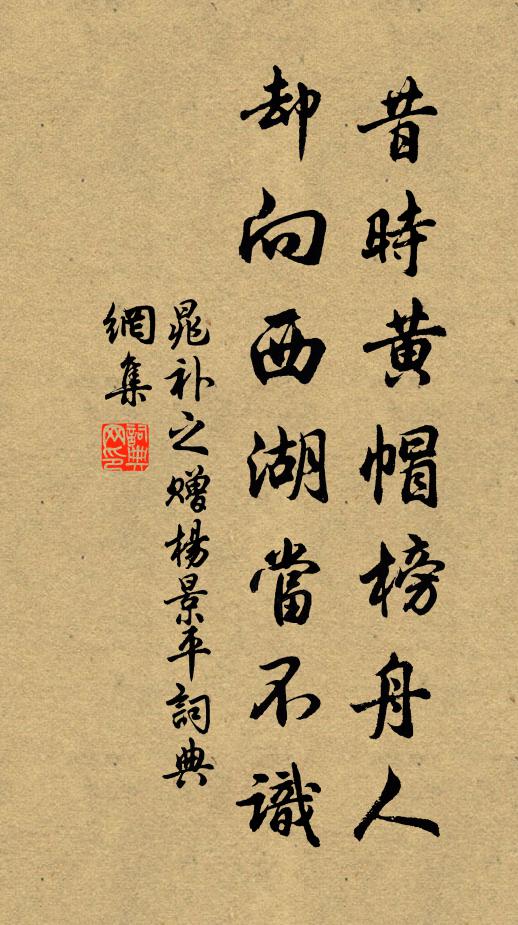 昔時黄帽榜舟人
却向西湖當不識
晁补之赠楊景平詞典
網集
詞典网印